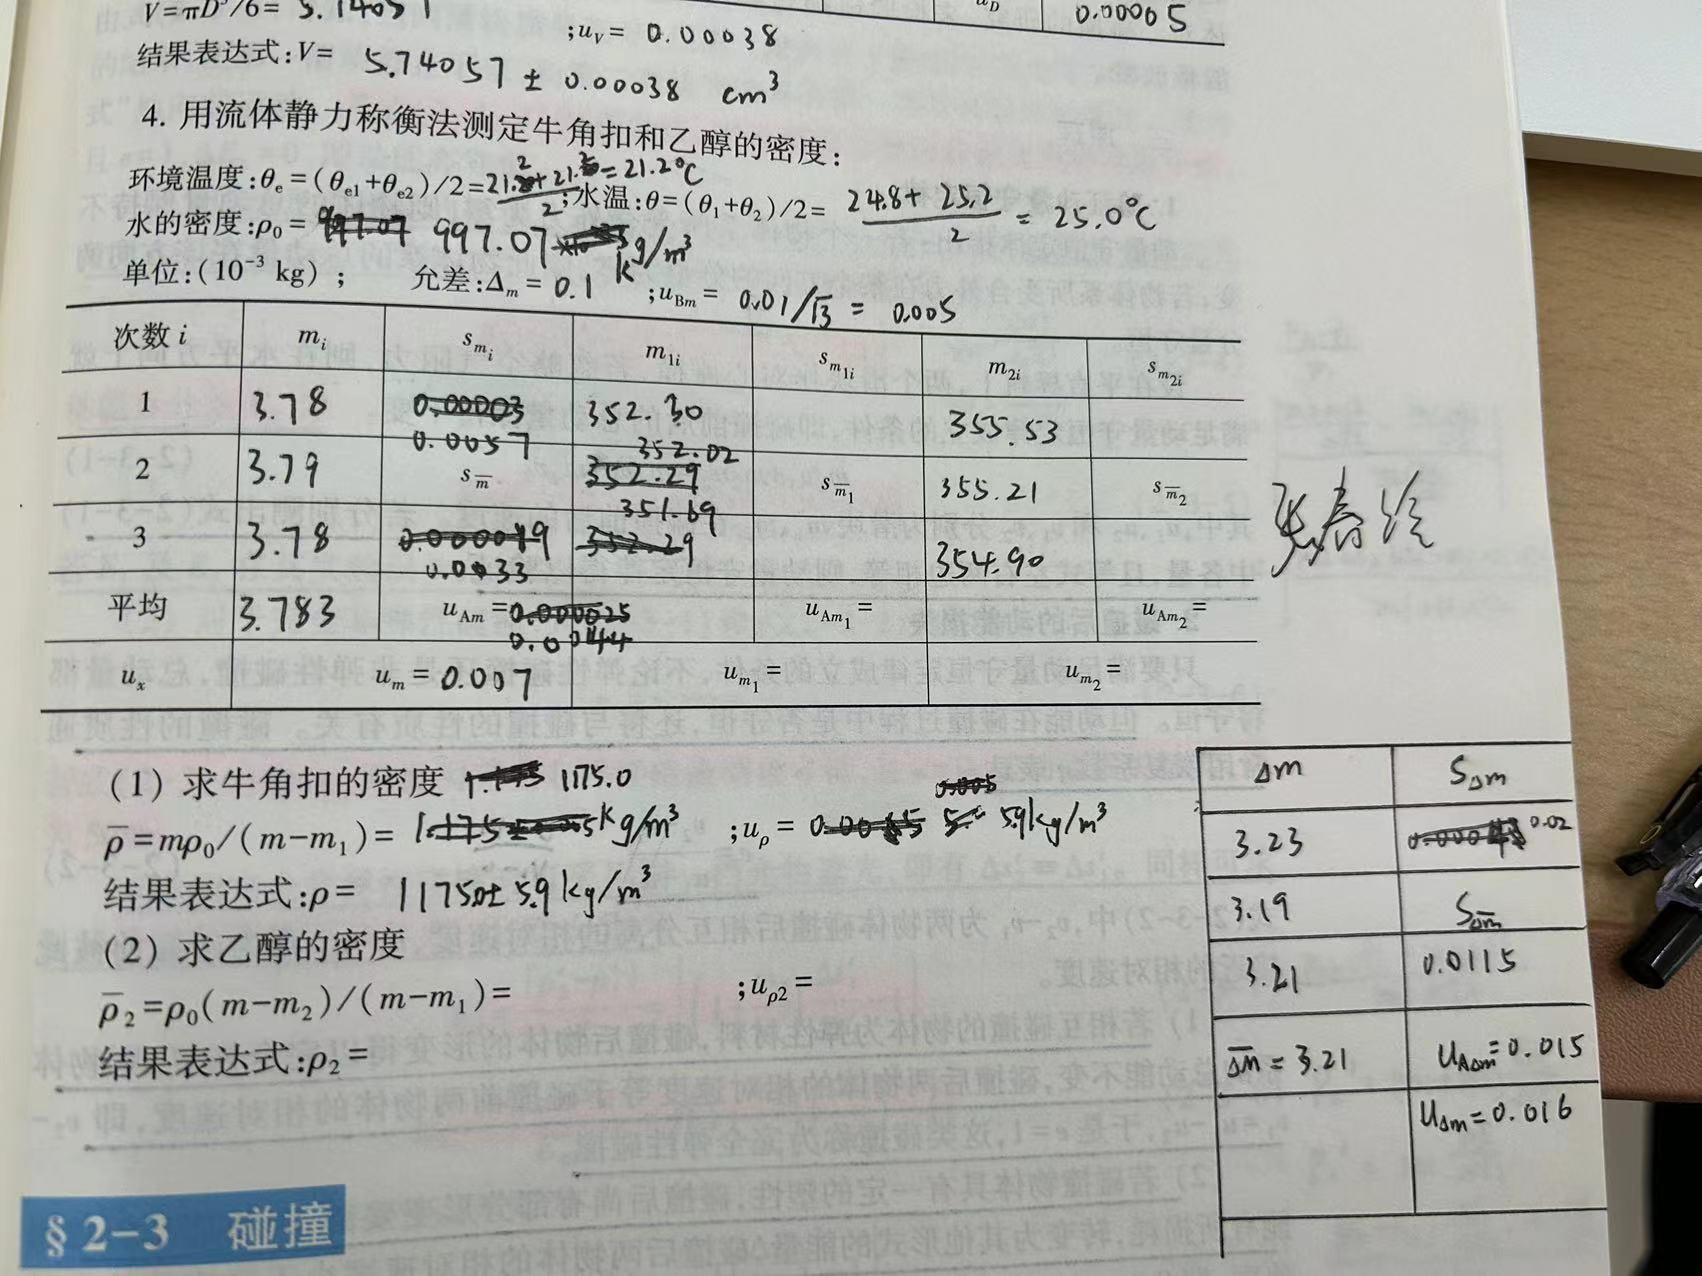 V=πD³/6=
u_D 0.00005
;u_V= 0.00038
结果表达式:V= 5.74057 ± 0.00038 cm³
4. 用流体静力称衡法测定牛角扣和乙醇的密度:
环境温度:θe=(θe1+θe2)/2= =21.2°C ;水温:θ=(θ1+θ2)/2= (24.8+25.2)/2 = 25.0°C
水的密度:ρ0= 997.07 kg/m³
单位:(10⁻³ kg) ; 允差:Δm= 0.1 ;uBm= 0.01/√3 = 0.005
次数 i mi smi m1i sm1i m2i sm2i
1 3.78 0.0057 352.30 355.53
2 3.79 sm̄ 352.02 sm̄1 355.21 sm̄2
3 3.78 0.0033 351.69 354.90
平均 3.783 uAm= 0.0044 uAm1= uAm2=
ux um= 0.007 um1= um2=
(1) 求牛角扣的密度 1175.0
ρ̄=mρ0/(m-m1)= kg/m³ ;uρ= 5.9kg/m³
结果表达式:ρ= 1175.0± 5.9 kg/m³
(2) 求乙醇的密度
ρ̄2=ρ0(m-m2)/(m-m1)= ;uρ2=
结果表达式:ρ2=
Δm SΔm
3.23 0.02
3.19 SΔm̄
3.21 0.0115
Δm̄=3.21 UAΔm=0.015
UΔm=0.016
§2-3 碰撞